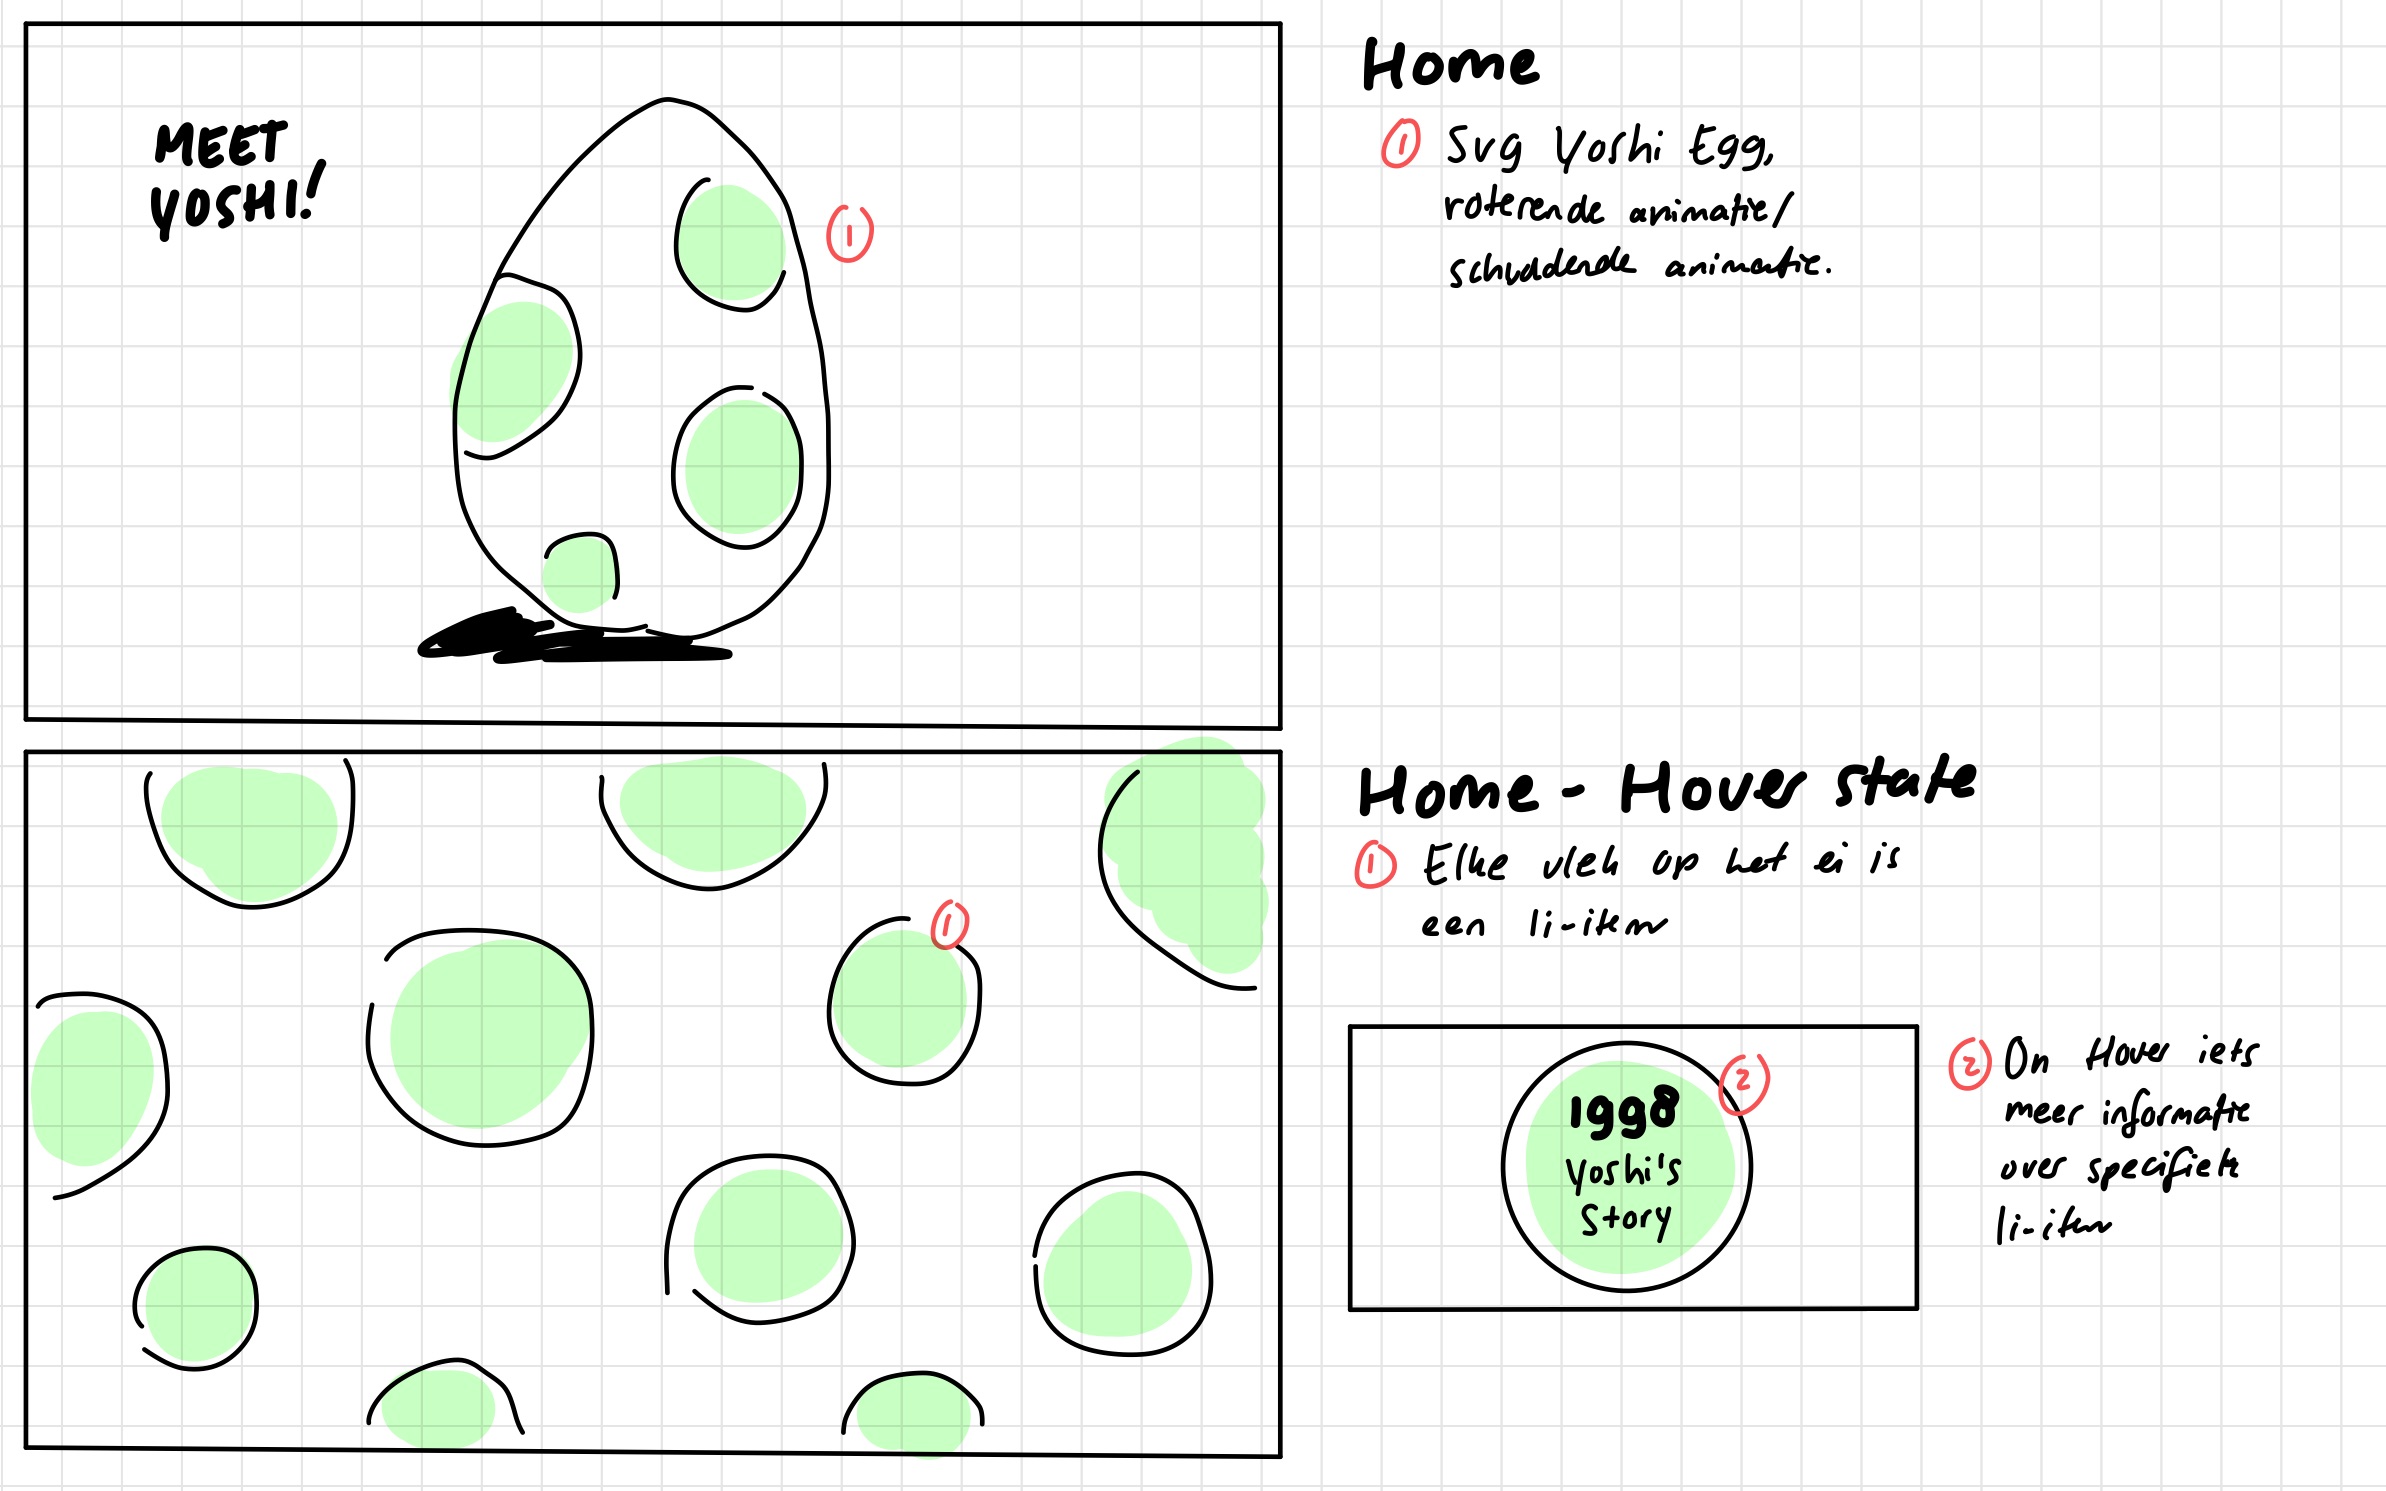 MEET
YOSHI!
1
Home
1 Svg Yoshi Egg,
roterende animatie/
schuddende animatie.
1
Home - Hover state
1 Elke vlek op het ei is
een li-item
1998
Yoshi's
Story
2
2 On Hover iets
meer informatie
over specifiek
li-item